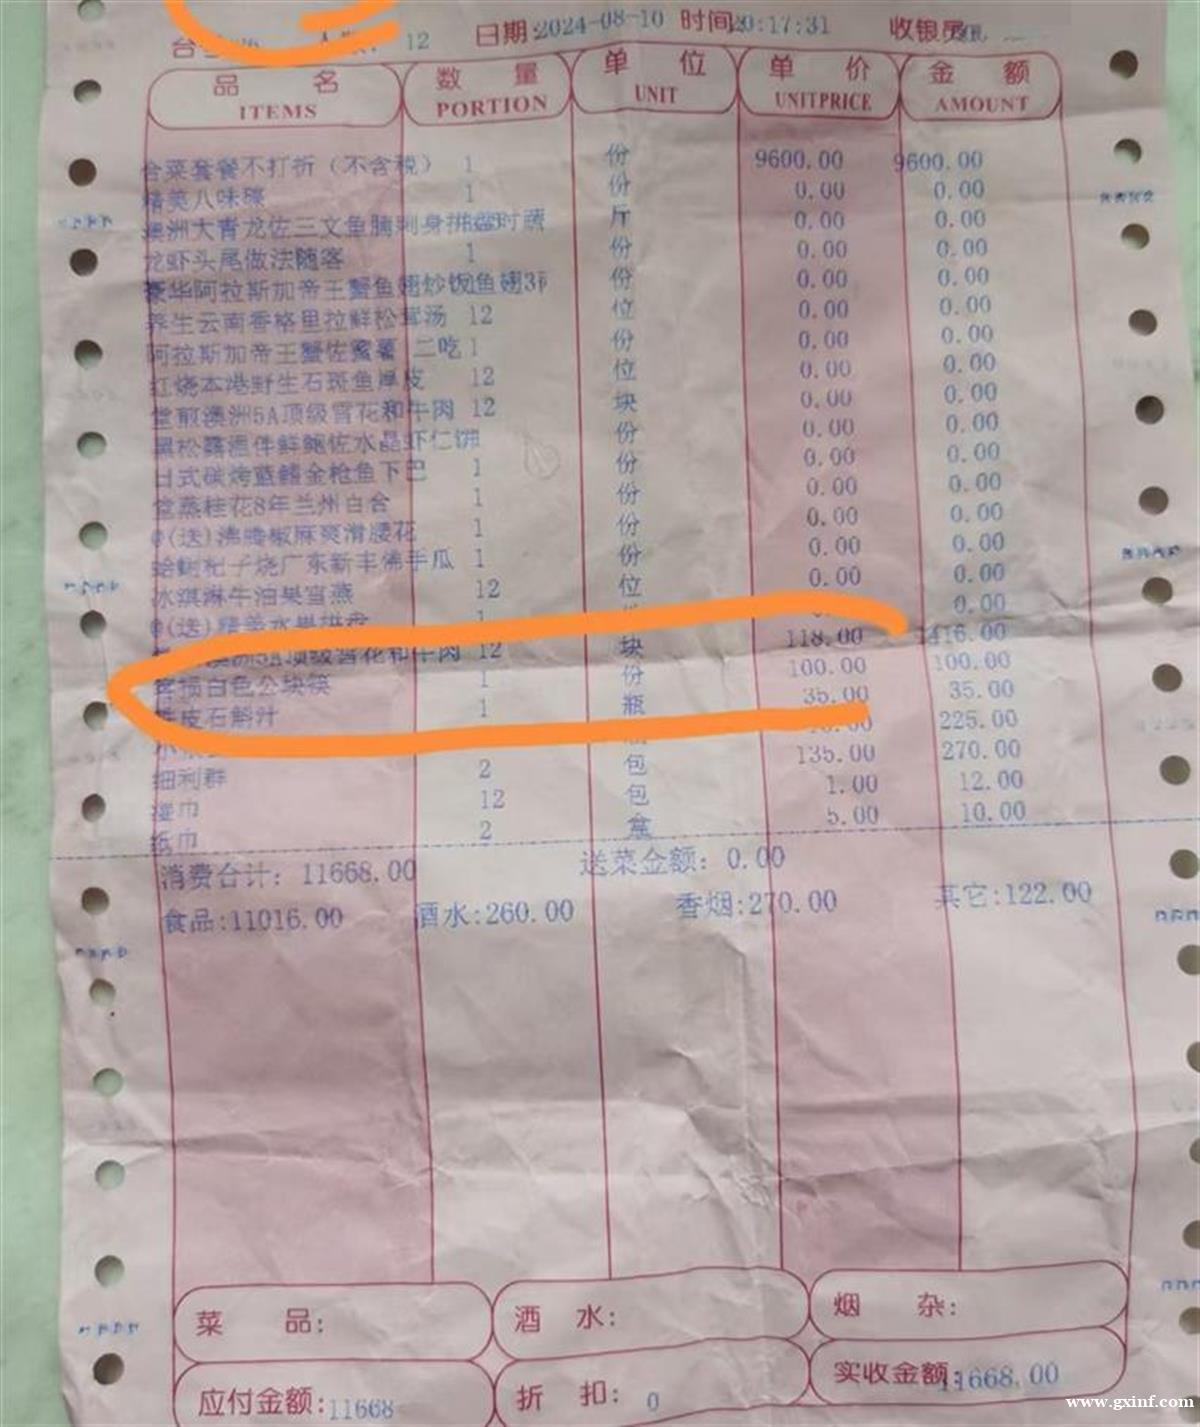 12 日期:2024-08-10 时间20:17:31 收银员
品 名 数 量 单 位 单 价 金 额
ITEMS PORTION UNIT UNITPRICE AMOUNT
合菜套餐不打折（不含税） 1 份 9600.00 9600.00
精美八味碟 1 份 0.00 0.00
澳洲大青龙佐三文鱼腩刺身拼 时蔬 斤 0.00 0.00
龙虾头尾做法随客 1 份 0.00 0.00
豪华阿拉斯加帝王蟹鱼翅炒饭 鱼翅3 份 0.00 0.00
养生云南香格里拉鲜松茸汤 12 位 0.00 0.00
阿拉斯加帝王蟹佐蜜薯 二吃 1 份 0.00 0.00
红烧本港野生石斑鱼厚皮 12 位 0.00 0.00
堂煎澳洲5A顶级雪花和牛肉 12 块 0.00 0.00
黑松露 伴鲜鲍佐水晶虾仁饼 份 0.00 0.00
日式碳烤蓝鳍金枪鱼下巴 1 份 0.00 0.00
堂蒸桂花8年兰州百合 1 份 0.00 0.00
@(送)沸腾椒麻爽滑腰花 1 份 0.00 0.00
杞子烧广东新丰佛手瓜 1 份 0.00 0.00
冰淇淋牛油果雪燕 12 位 0.00 0.00
@(送)精美水果拼盘 1 0.00
澳洲5A顶级雪花和牛肉 12 块 118.00 1416.00
客损白色公块筷 1 份 100.00 100.00
铁皮石斛汁 1 瓶 35.00 35.00
225.00
细利群 2 包 135.00 270.00
湿巾 12 包 1.00 12.00
纸巾 2 盒 5.00 10.00
消费合计: 11668.00 送菜金额: 0.00
食品:11016.00 酒水:260.00 香烟:270.00 其它:122.00
菜 品: 酒 水: 烟 杂:
应付金额:11668 折 扣: 0 实收金额:11668.00
www.gxinf.com